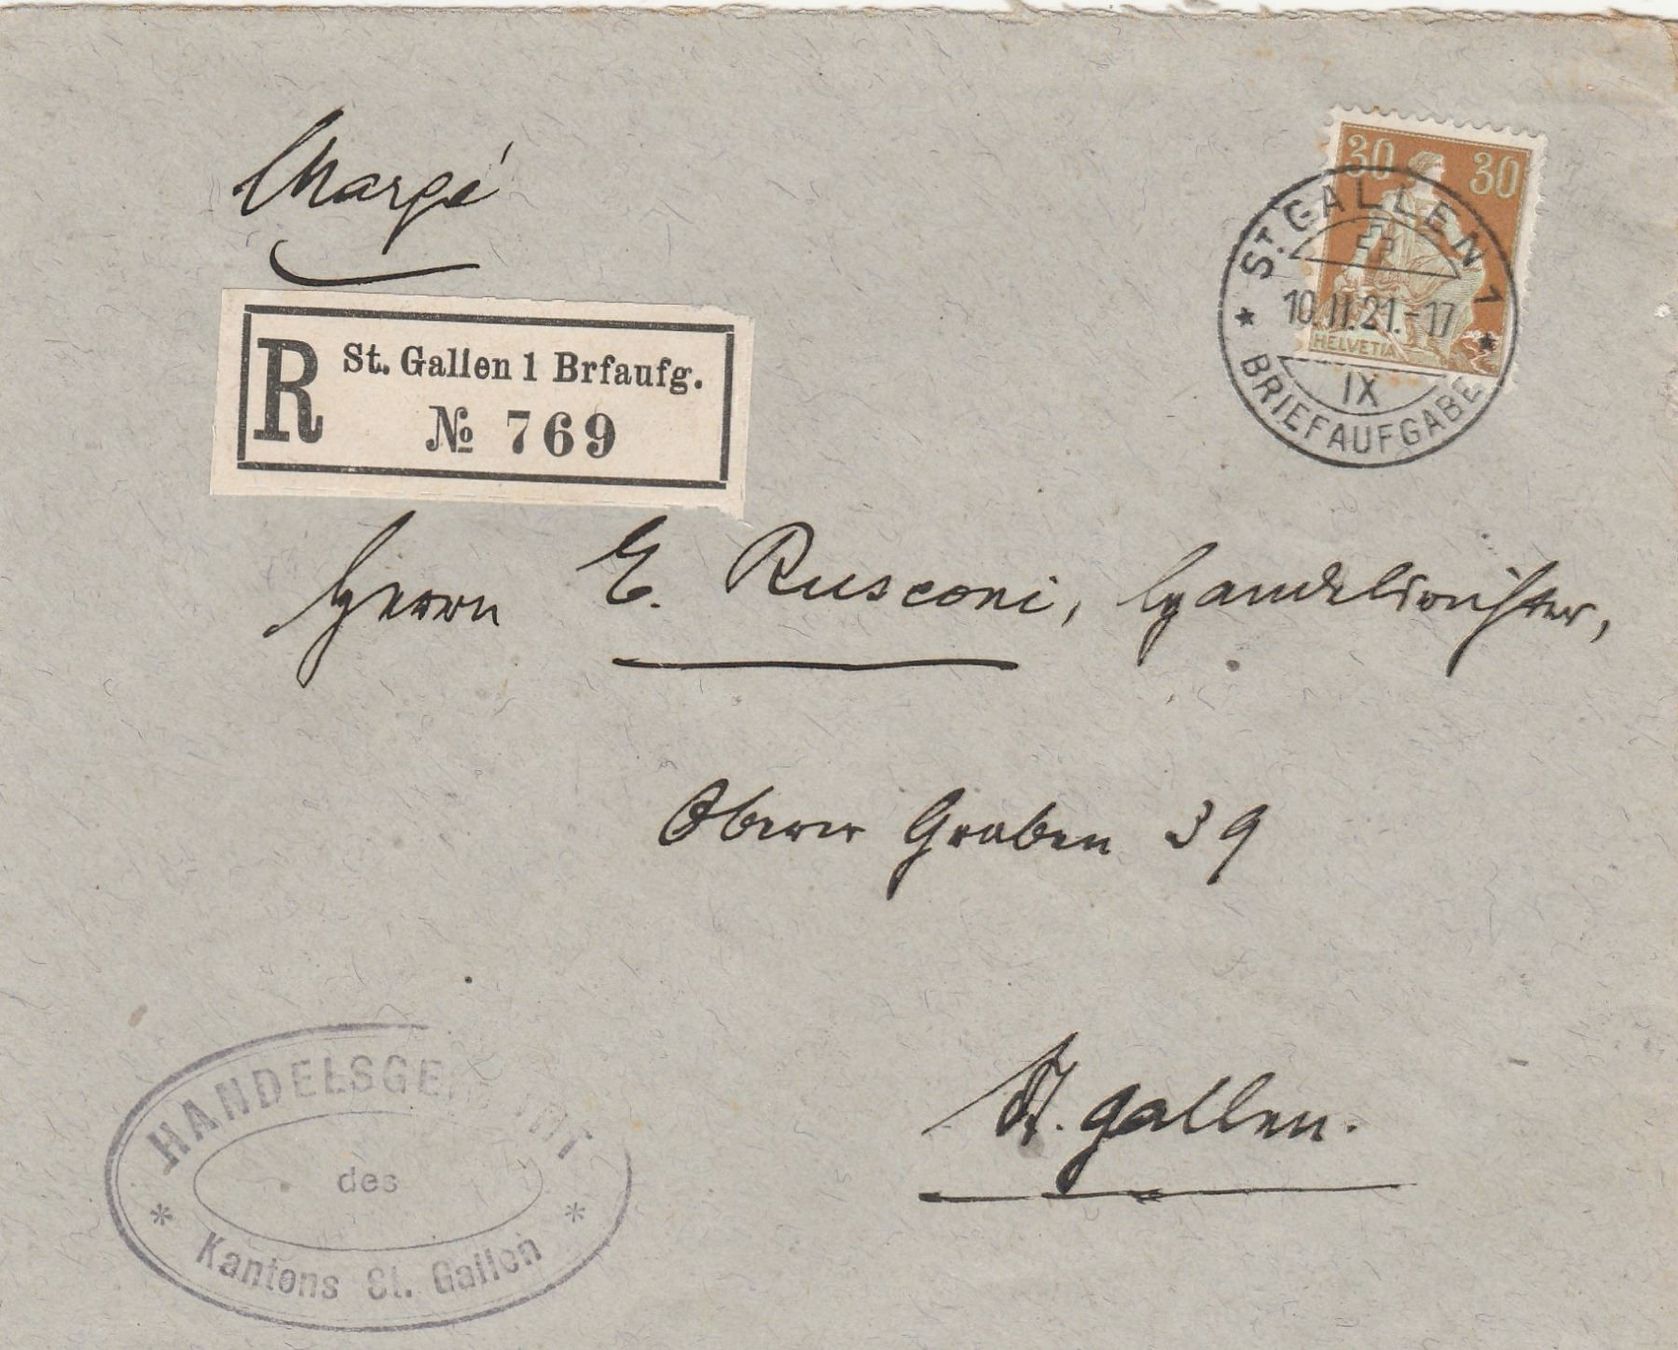 Chargé
30 30
HELVETIA
ST. GALLEN 1
10.II.21.-17
IX
BRIEFAUFGABE
R St. Gallen 1 Brfaufg.
№ 769
Herrn E. Rusconi, Handelsrichter,
Oberer Graben 39
St. Gallen.
HANDELSGERICHT
des
Kantons St. Gallen